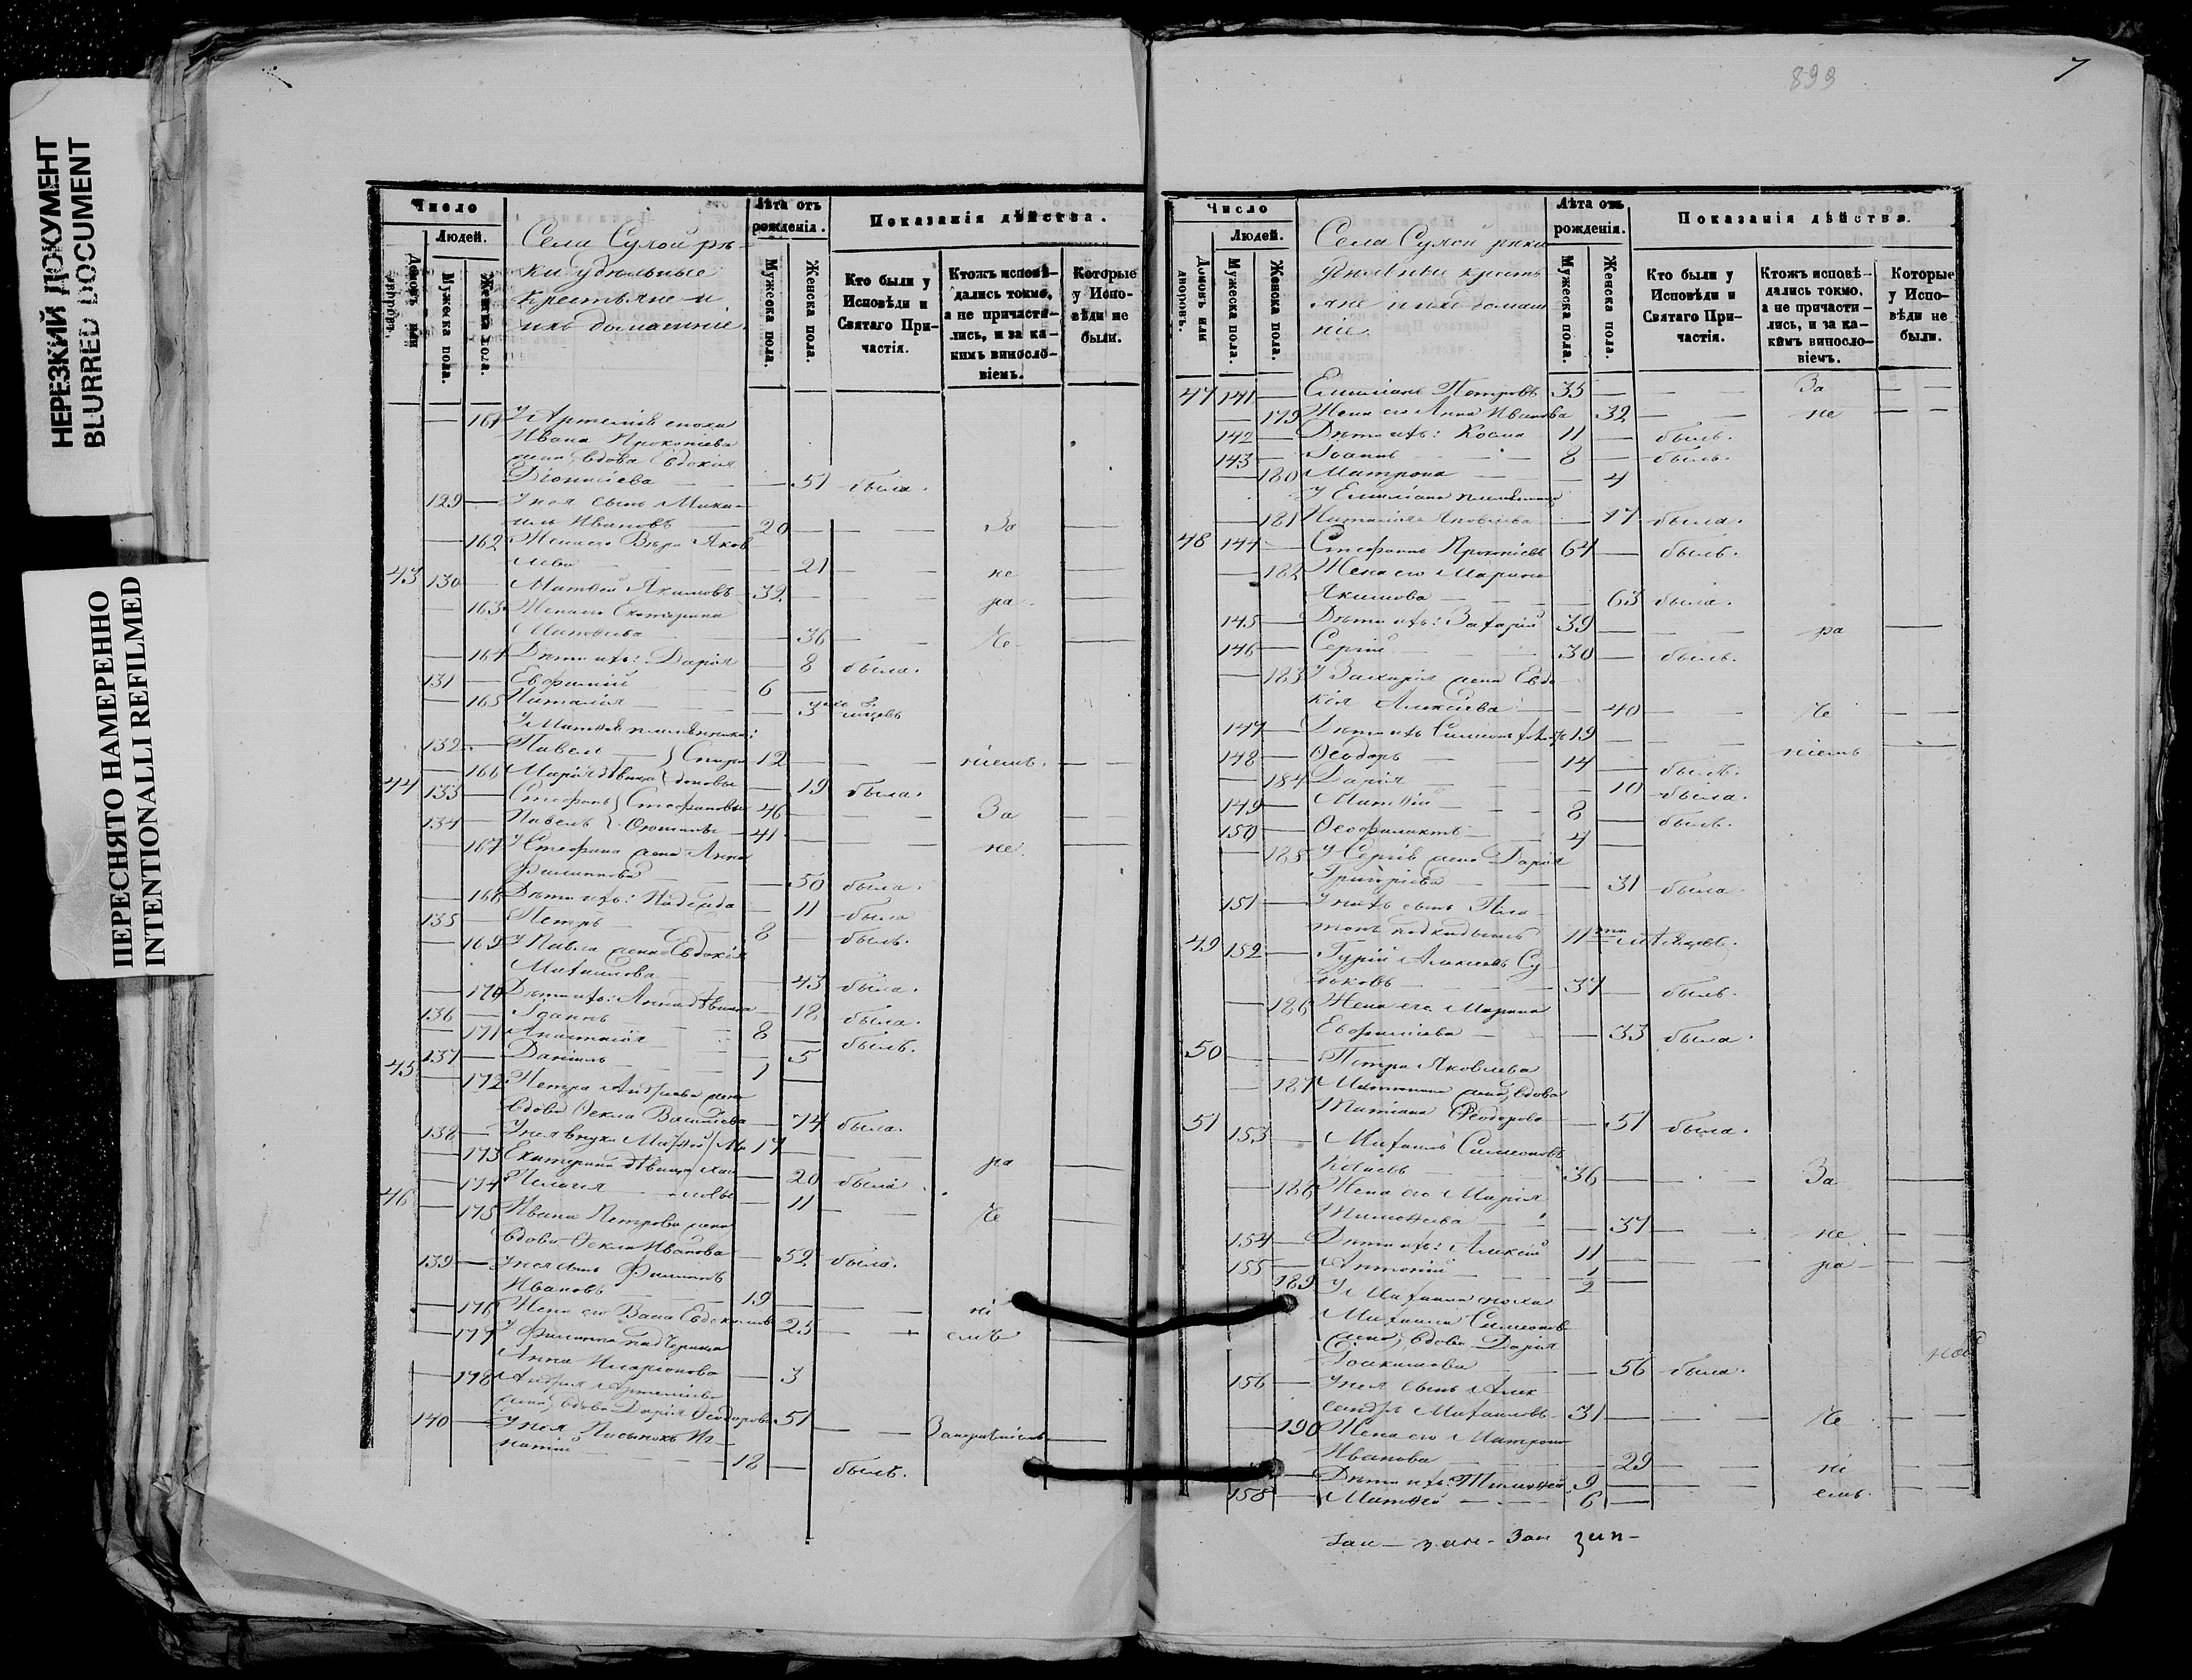 НЕРЕЗКИЙ ДОКУМЕНТ
BLURRED DOCUMENT
ПЕРЕСНЯТО НАМЕРЕННО
INTENTIONALLI REFILMED
Число
Людей.
Домовъ или дворовъ.
Мужеска пола.
Женска пола.
Села Сухой рѣ-
ки удѣльные
крестьяне и
ихъ домашніе.
Лѣта отъ рожденія.
Мужеска пола.
Женска пола.
Показанія дѣйства.
Кто были у Исповѣди и Святаго При-частія.
Ктожъ исповѣ-дались токмо, а не причасти-лись, и за ка-кимъ винословіемъ.
Которые у Испо-вѣди не были.
161 У Артемія сноха
Ивана Прокопіева
жена, вдова Евдокія
Діонисіева — 51 была.
129 — У нея сынъ Миха-
илъ Ивановъ — 20 — За —
162 Жена его Вѣра Яков-
лева — 21 — не —
43 130 — Матѳей Якимовъ — 32 — ра —
163 Жена его Екатерина
Матѳеева — 36 — че —
164 Дѣти ихъ: Дарія — 8 была.
131 — Евѳимій — 6 —
165 Наталія — 3
У Матѳея племянники:
132 — Павелъ } Спири 12 — ніемъ. —
166 Марія дѣвица } доновы — 19 была.
44 133 — Стефанъ } Стефановы 46 — За —
134 — Павелъ } — 41 — не —
167 У Стефана жена Анна
Филиппова — 50 была.
168 Дѣти ихъ: Надежда — 11 была
135 — Петръ — 8 — былъ.
169 У Павла жена Евдокія
Михаилова — 43 была.
170 Дѣти ихъ: Анна дѣвица — 18 была.
136 — Іоаннъ — 8 — былъ.
171 Анастасія — 5
137 — Даніилъ — 1 —
45 172 Петра Андреева жена
вдова Ѳекла Васильева — 74 была.
138 — У нея внуки Матѳей 17 — ра —
173 Екатерина дѣвица — 20 была
174 Пелагея — 11 — че —
46 175 Ивана Петрова жена
вдова Ѳекла Иванова — 52 была.
139 — У нея сынъ Филиппъ
Ивановъ — 19 — ні
176 Жена его Васса Евдокимова 25 — емъ —
177 У Филиппа падчерица
Анна Иларіонова — 3
178 Андрея Артеміева
жена, вдова Дарія Ѳеодорова 51 —
140 — У нея Пасынокъ Иг-
натій — 18 — былъ.
899
7
Число
Людей.
Домовъ или дворовъ.
Мужеска пола.
Женска пола.
Села Сухой рѣки
удѣльные кресть
яне и ихъ домаш
ніе.
Лѣта отъ рожденія.
Мужеска пола.
Женска пола.
Показанія дѣйства.
Кто были у Исповѣди и Святаго При-частія.
Ктожъ исповѣ-дались токмо, а не причасти-лись, и за ка-кимъ винословіемъ.
Которые у Испо-вѣди не были.
47 141 — Емиліанъ Петровъ 35 — За —
179 Жена его Анна Иванова 32 — не —
142 — Дѣти ихъ: Косма 11 — былъ.
143 — Іоаннъ — 8 — былъ.
180 Матрона — 4
У Емиліана племянница
181 Наталія Яковлева — 17 была.
48 144 — Стефанъ Прокопіевъ 64 — былъ.
182 Жена его Марина
Якимова — 63 была.
145 — Дѣти ихъ: Захарій 39 — ра —
146 — Сергій — 30 — былъ.
183 У Захарія жена Евдо
кія Алексіева — 40 — че —
147 — Дѣти ихъ Симеонъ 19 — ніемъ —
148 — Ѳеодоръ — 14 — былъ.
184 Дарія — 10 была.
149 — Матѳій — 8 — былъ.
150 — Ѳеофилактъ — 4 —
185 У Сергія жена Дарія
Григоріева — 31 была
151 — У нихъ сынъ Пла-
тонъ подкидышъ 11ти мѣсяцев.
49 152 — Гурій Алексіевъ Су
— 37 — былъ.
186 Жена его Марина
Евфиміева — 33 была.
50 — Петра Яковлева
187 жена, вдова
Татіана Ѳеодорова — 51 была.
51 153 — Михаилъ Симеоновъ
— 36 — За —
188 Жена его Марія
Тимоѳеева — 37 — не —
154 — Дѣти ихъ: Алексій 11 — ра —
155 — Антоній — 1/2 —
189 У Михаила сноха
Михаила Симеонов
жена, вдова Дарія
Іоакимова — 56 была.
156 — У нея сынъ Алек
сандръ Михаиловъ 31 — че —
190 Жена его Матрона
Иванова — 29 — ні —
— Дѣти ихъ: Тимоѳей 9 — емъ. —
158 — Матѳей — 6 —